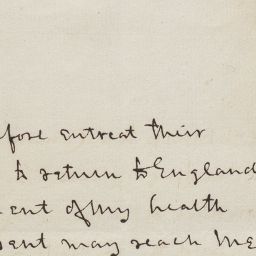 efore entreat their
to return to England
ment of my health
sent may reach me